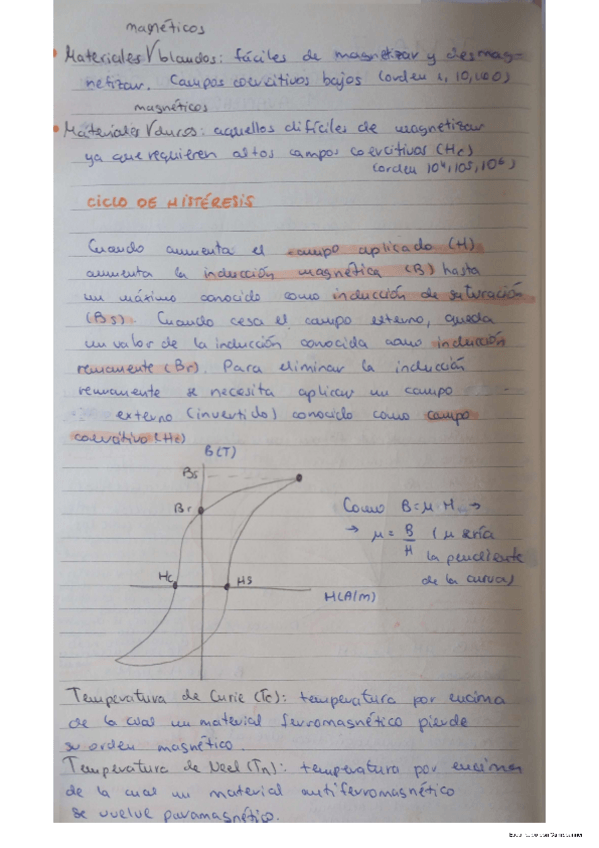 magnéticos
• Materiales √ blandos: fáciles de magnetizar y desmag-
netizar. Campos coercitivos bajos (orden 1, 10, 100)
magnéticos
• Materiales √ duros: aquellos difíciles de magnetizar
ya que requieren altos campos coercitivos (Hc)
(orden 10⁴, 10⁵, 10⁶)
CICLO DE HISTÉRESIS
Cuando aumenta el campo aplicado (H)
aumenta la inducción magnética (B) hasta
un máximo conocido como inducción de saturación
(Bs). Cuando cesa el campo externo, queda
un valor de la inducción conocida como inducción
remanente (Br). Para eliminar la inducción
remanente se necesita aplicar un campo
externo (invertido) conocido como campo
coercitivo (Hc)
B(T)
Bs
Br
Hc
HS
H(A/m)
Como B=μ·H →
→ μ = B/H (μ sería
la pendiente
de la curva)
Temperatura de Curie (Tc): temperatura por encima
de la cual un material ferromagnético pierde
su orden magnético.
Temperatura de Neel (Tn): temperatura por encima
de la cual un material antiferromagnético
se vuelve paramagnético.